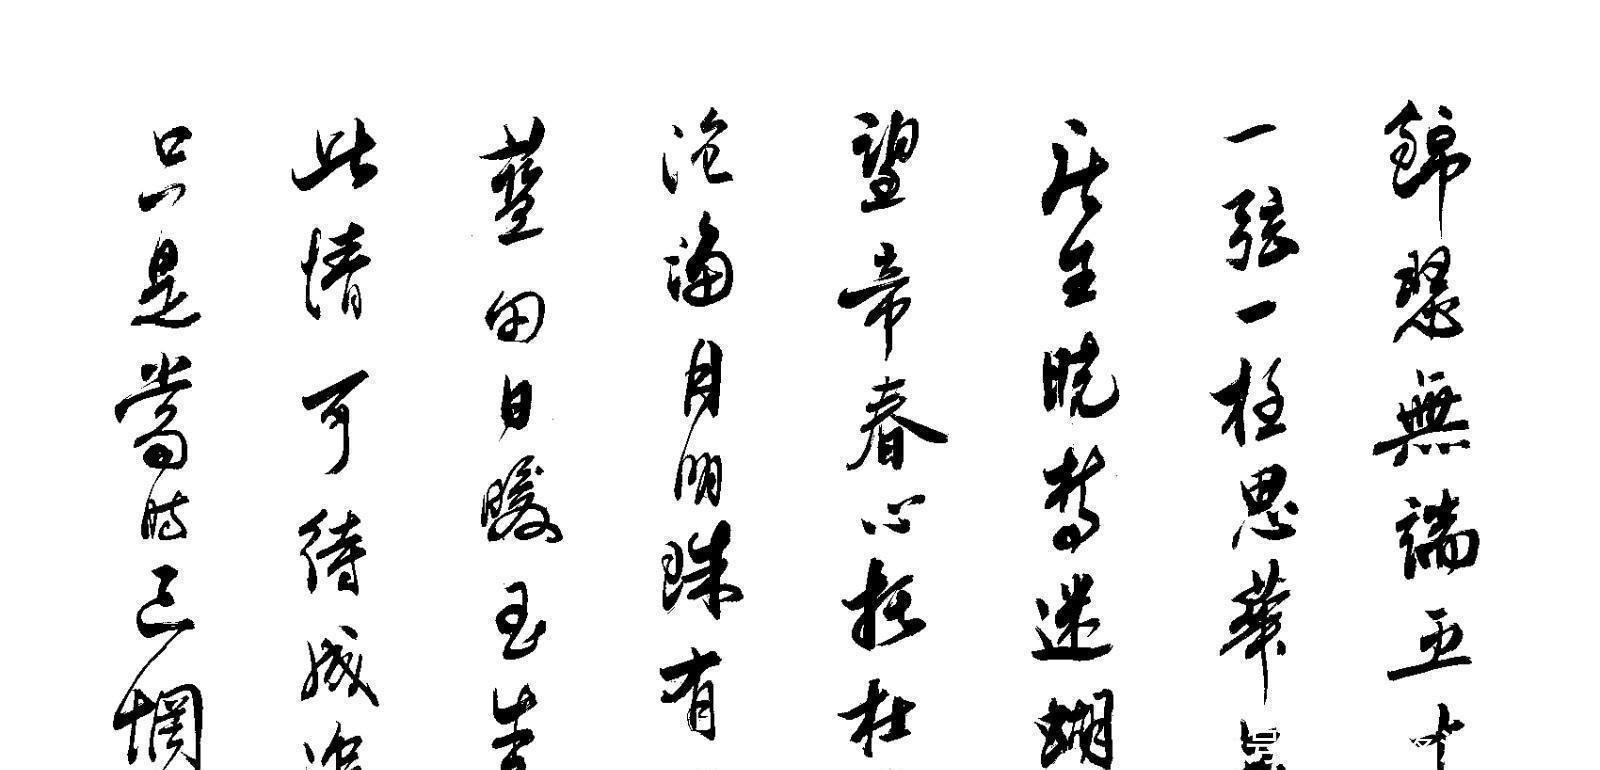 錦瑟無端五十
一弦一柱思華年
莊生曉夢迷蝴
望帝春心托杜
滄海月明珠有
藍田日暖玉生
此情可待成追
只是當時已惘